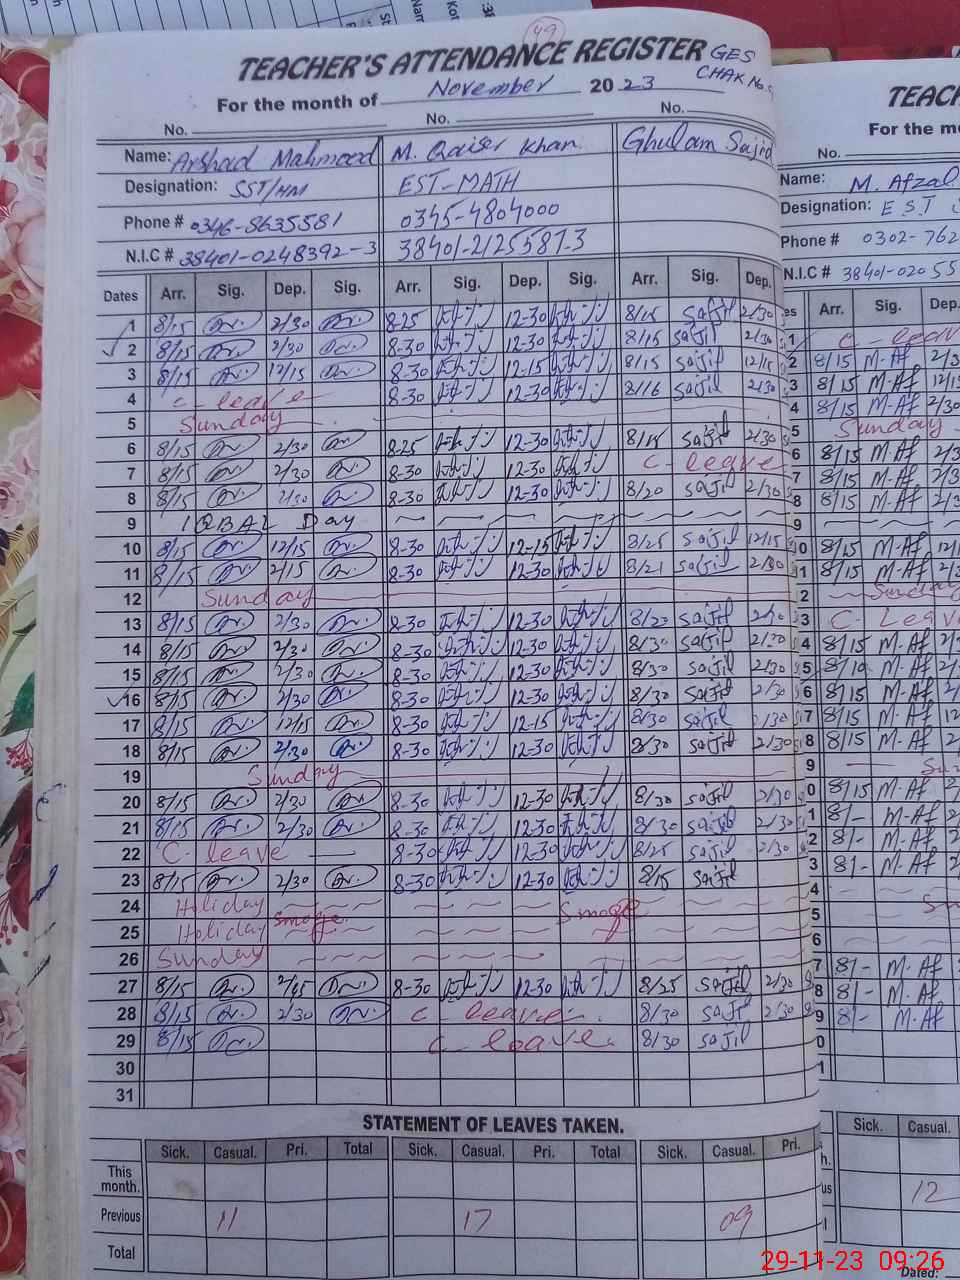 49
TEACHER'S ATTENDANCE REGISTER GES
CHAK No.
For the month of November 2023
No. No. No.
Name: Arshad Mahmood M. Qaiser Khan Ghulam Sajid
Designation: SST/HM EST-MATH
Phone # 0346-8635581 0345-4804000
N.I.C # 38401-0248392-3 38401-2125587-3
Dates Arr. Sig. Dep. Sig. Arr. Sig. Dep. Sig. Arr. Sig. Dep.
1 8/15 2/30 8-25 12-30 8/15 Sajil 2/30
2 8/15 2/30 8-30 12-30 8/15 Sajil 2/30
3 8/15 12/15 8-30 12-15 8/15 Sajil 12/15
4 C-leave 8-30 12-30 8/16 Sajil 2/30
5 Sunday
6 8/15 2/30 8-25 12-30 8/15 Sajil 2/30
7 8/15 2/30 8-30 12-30 C-leave
8 8/15 2/30 8-30 12-30 8/20 Sajil 2/30
9 IQBAL Day
10 8/15 12/15 8-30 12-15 8/25 Sajil 12/15
11 8/15 2/15 8-30 12-30 8/21 Sajil 2/30
12 Sunday
13 8/15 2/30 8-30 12-30 8/20 Sajil 2/30
14 8/15 2/30 8-30 12-30 8/30 Sajil 2/30
15 8/15 2/30 8-30 12-30 8/30 Sajil 2/30
16 8/15 2/30 8-30 12-30 8/30 Sajil 2/30
17 8/15 12/15 8-30 12-15 8/30 Sajil 2/30
18 8/15 2/30 8-30 12-30 8/30 Sajil 2/30
19 Sunday
20 8/15 2/30 8-30 12-30 8/30 Sajil 2/30
21 8/15 2/30 8-30 12-30 8/30 Sajil 2/30
22 C-leave 8-30 12-30 8/25 Sajil 2/30
23 8/15 2/30 8-30 12-30 8/15 Sajil
24 Holiday Smoge Smoge
25 Holiday
26 Sunday
27 8/15 8-30 12-30 8/25 Sajil 2/30
28 8/15 2/30 C-leave 8/30 Sajil 2/30
29 8/15 C-leave 8/30 Sajil
30
31
STATEMENT OF LEAVES TAKEN.
Sick. Casual. Pri. Total Sick. Casual. Pri. Total Sick. Casual. Pri.
This month.
Previous 11 17 09
Total
TEAC
For the mo
No.
Name: M. Afzal
Designation: EST
Phone # 0302-762
N.I.C # 38401-02055
Arr. Sig. Dep.
C-leav
8/15 M-Af 2/3
8/15 M-Af 12/1
8/15 M-Af 2/30
Sunday
8/15 M-Af 2/3
8/15 M-Af 2/3
8/15 M-Af 2/3
8/15 M-Af 12/
8/15 M-Af 2/3
Sunday
C-Leav
8/15 M-Af 2/
8/10 M-Af 2/
8/15 M-Af 2/
8/15 M-Af 12
8/15 M-Af 2/
Su
8/15 M-Af 2/
8/- M-Af 2
8/- M-Af 2
8/- M-Af
8/- M-Af
8/- M-Af
8/- M-Af
Sick. Casual.
12
Dated:
29-11-23 09:26